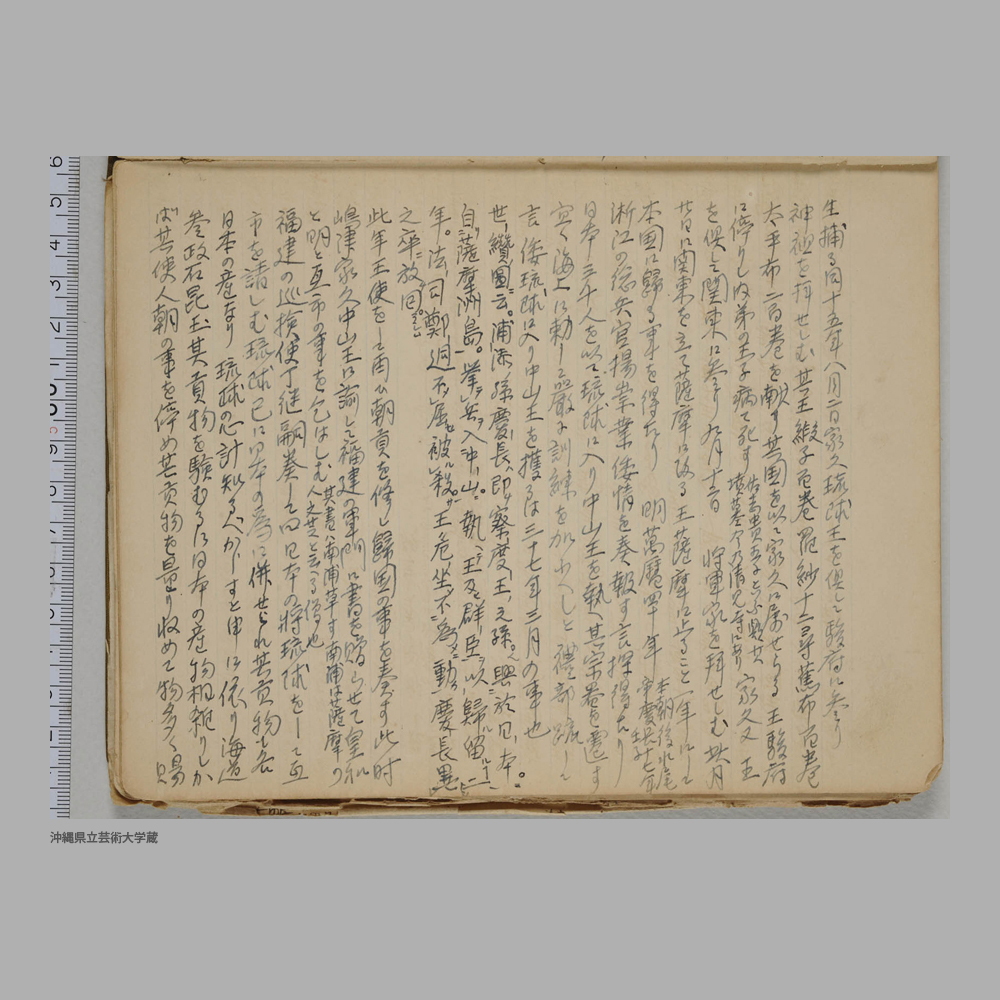 生捕る同十五年八月二日家久琉球王を倶して駿府に参り
神祖を拝せしむ其王緞子百巻羅紗十二尋蕉布百巻
太平布二百巻を献す其国を以て家久に属せらる 王駿府
に停りし内弟の王子病て死す 家久又 王
を倶して関東に参り 九月十二日 将軍家を拝せしむ 其月
廿日に関東を立て薩摩に改る 王薩摩に止ること一年にして
本国に歸る事を得たり 明萬暦四十年
浙江の総兵官揚崇業倭情を奏報す言探得たり
日本三千人を以て琉球に入り中山王を執へ其宗器を遷す
宜く海上に勅し厳に訓練を加ふへしと 禮部
言倭琉球に入り中山王を獲るは三十七年三月の事也
世纉圖云。浦添孫慶長、即察度王之孫。興於日本。
自薩摩洲島。挙兵入中山。執王及群臣以歸留二
年。法司鄭迵不屈被殺。王危坐不為動。慶長異
之卒放回
此年王使をして両ひ朝貢を修し歸国の事を奏す此時
嶋津家久中山王に諭して福建の軍門に書を贈らせて皇和
と明と互市の事を乞はしむ 其書ハ南浦草す南浦は薩摩の
人文世と云へる僧也
福建の巡撫使丁継嗣奏して曰日本の将琉球をして互
市を請しむ琉球已に日本の為に併せられ其貢物も各
日本の産なり 琉球の心計知るへからすと申に依り海道
参政石昆玉其貢物を験むるに日本の産物相雑りしか
ば其使人朝の事を停め其貢物を量り收めて物多く賜
沖縄県立芸術大学蔵